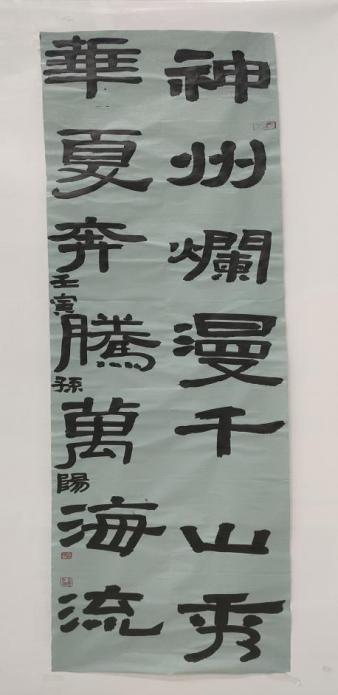 神州爛漫千山秀
華夏奔騰萬海流
壬寅孫陽